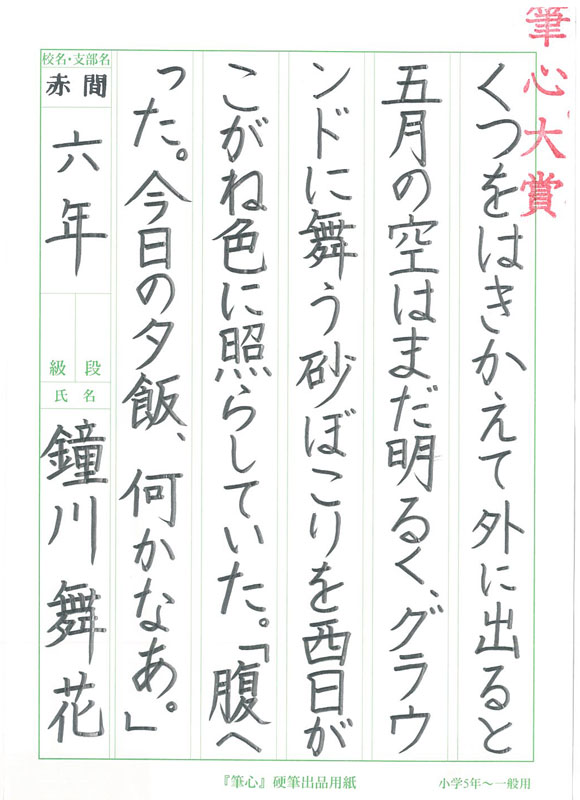 筆心大賞
くつをはきかえて外に出ると
五月の空はまだ明るく、グラウ
ンドに舞う砂ぼこりを西日が
こがね色に照らしていた。「腹へ
った。今日の夕飯、何かなあ。」
校名・支部名
赤間
六年
級 段
氏名
鐘川舞花
『筆心』硬筆出品用紙
小学5年〜一般用